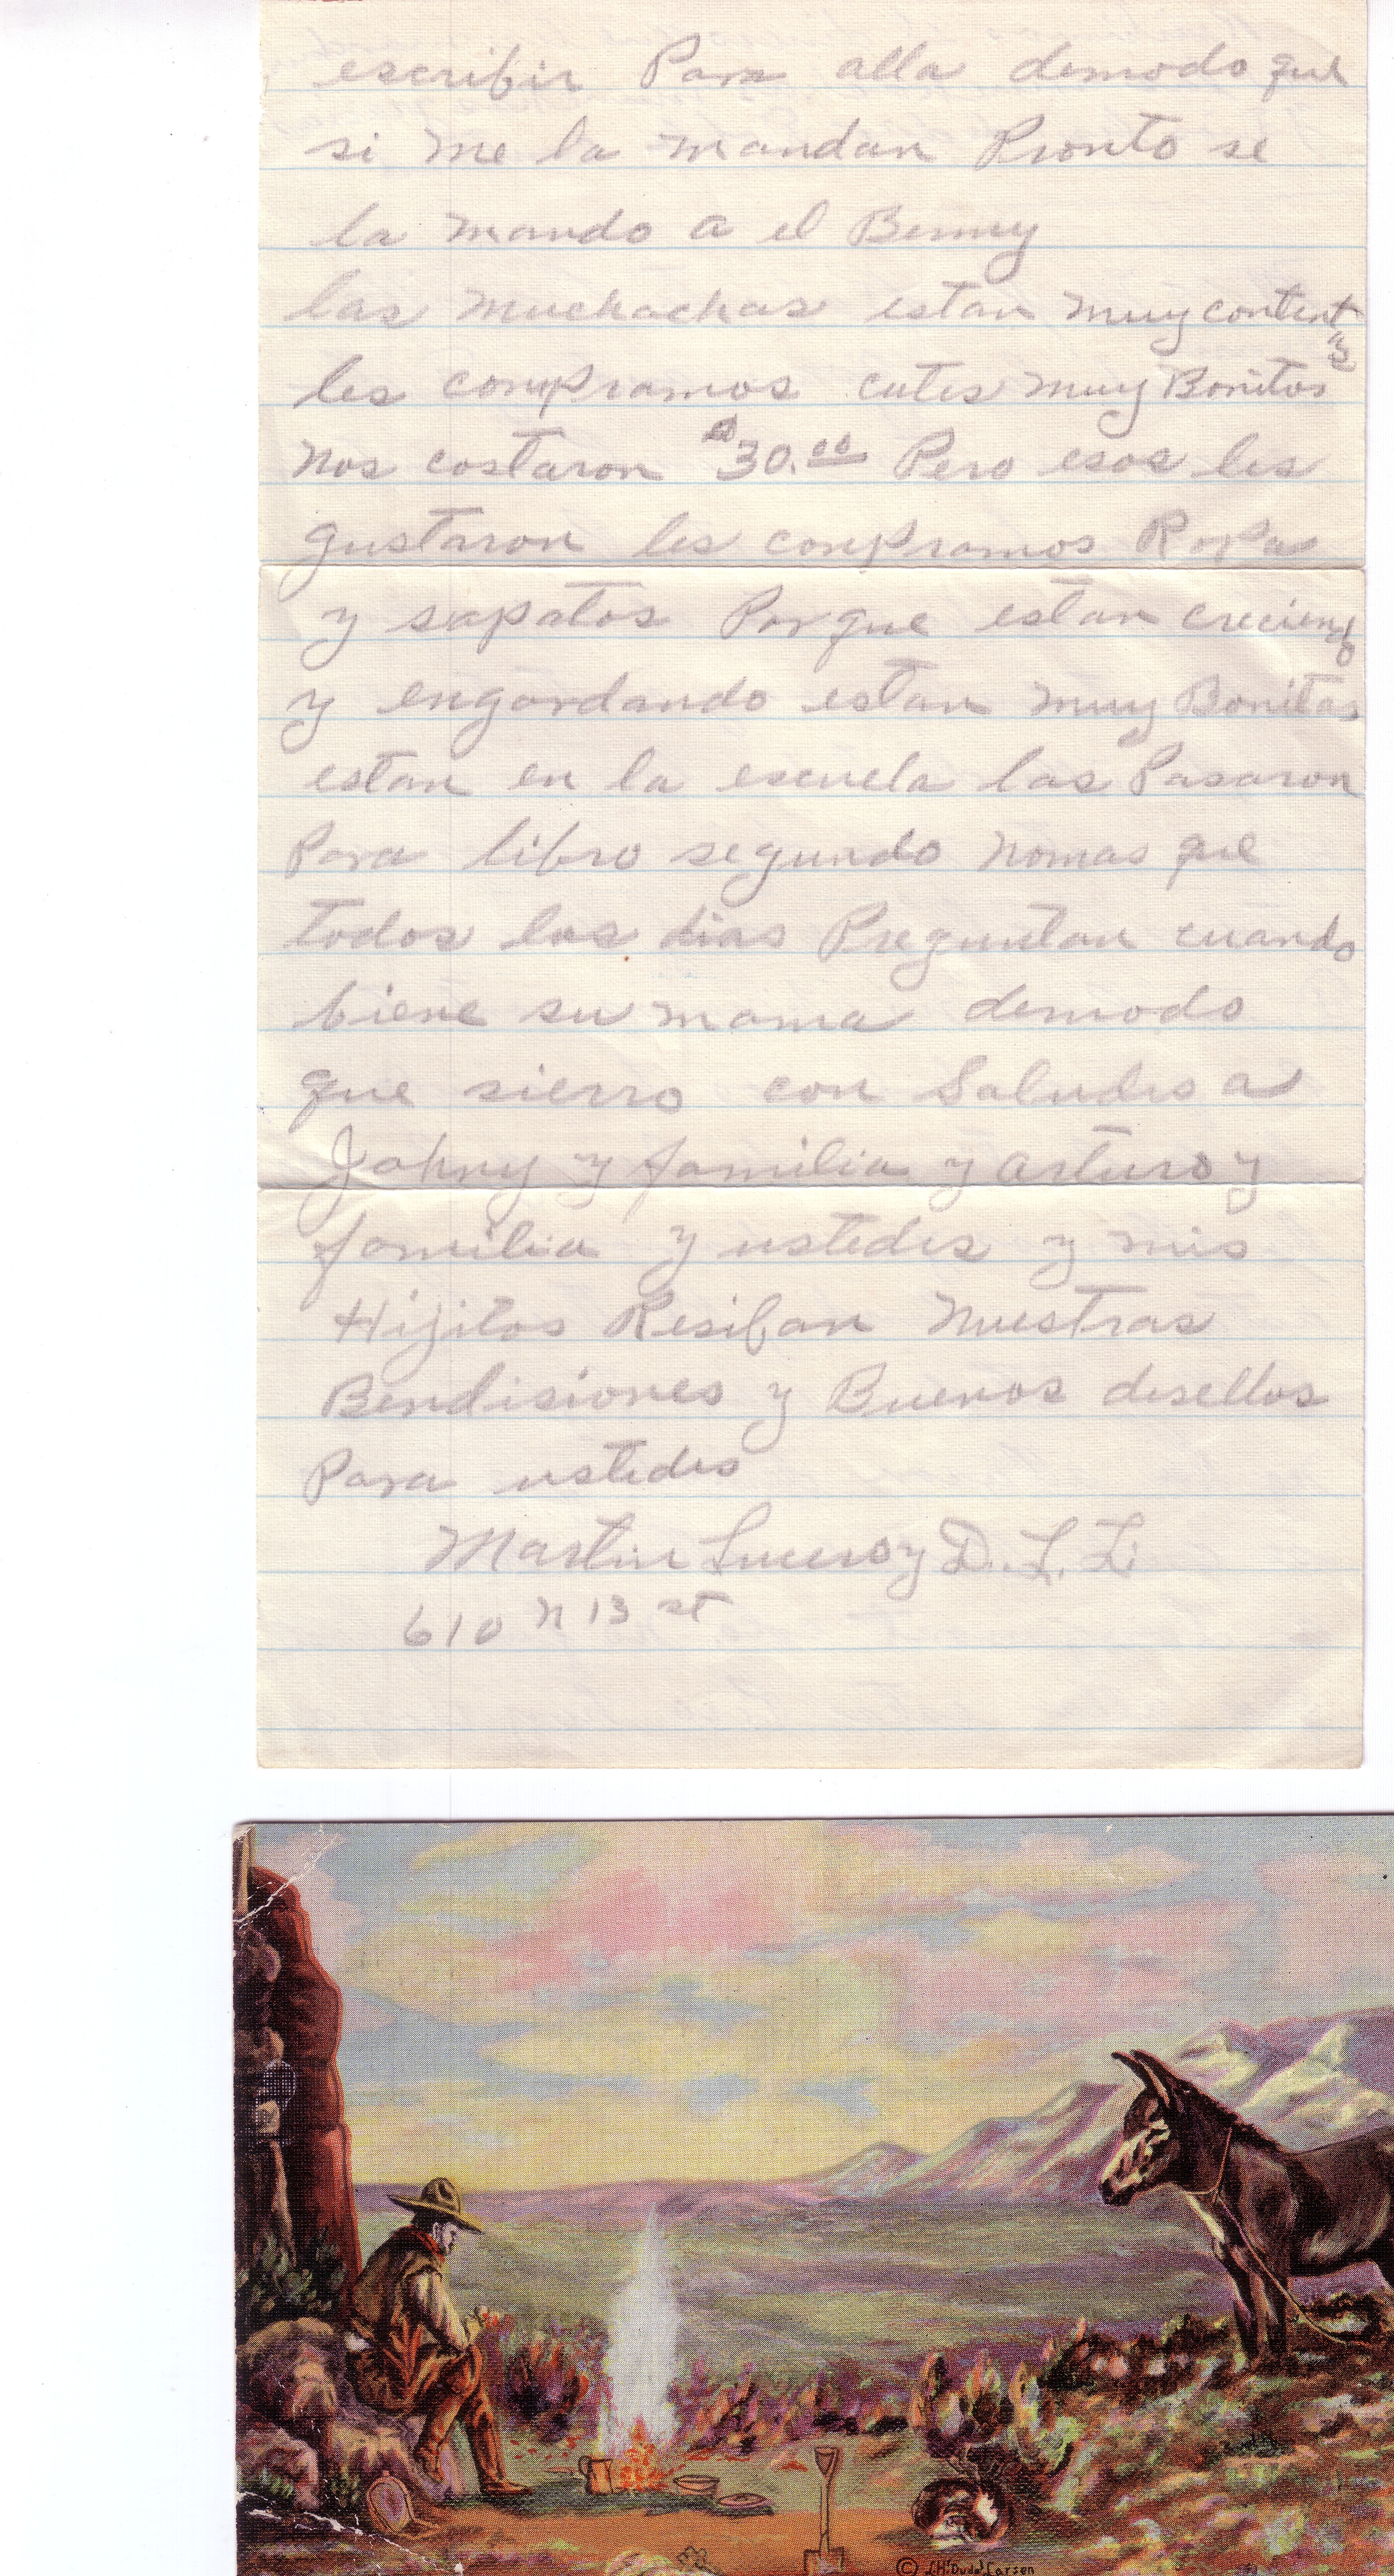 escribir Para alla demodo que
si me la mandan Pronto se
la mando a el Benny
las muchachas estan muy contentas
les compramos cutes muy Bonitos
nos costaron a 30.00 Pero esos les
gustaron les compramos Ropa
y sapatos Porque estan creciend
y engordando estan muy Bonitas
estan en la escuela las Pasaron
Para libro segundo nomas que
todos los dias Preguntan cuando
biene su mama demodo
que sierro con Saludes a
Johny y familia y arturo y
familia y ustedes y mis
Hijitos Resiban Nuestras
Bendisiones y Buenos desellos
Para ustedes
Martin Lucero y D. L. L
610 N 13 st
© L.H. "Dude" Larsen